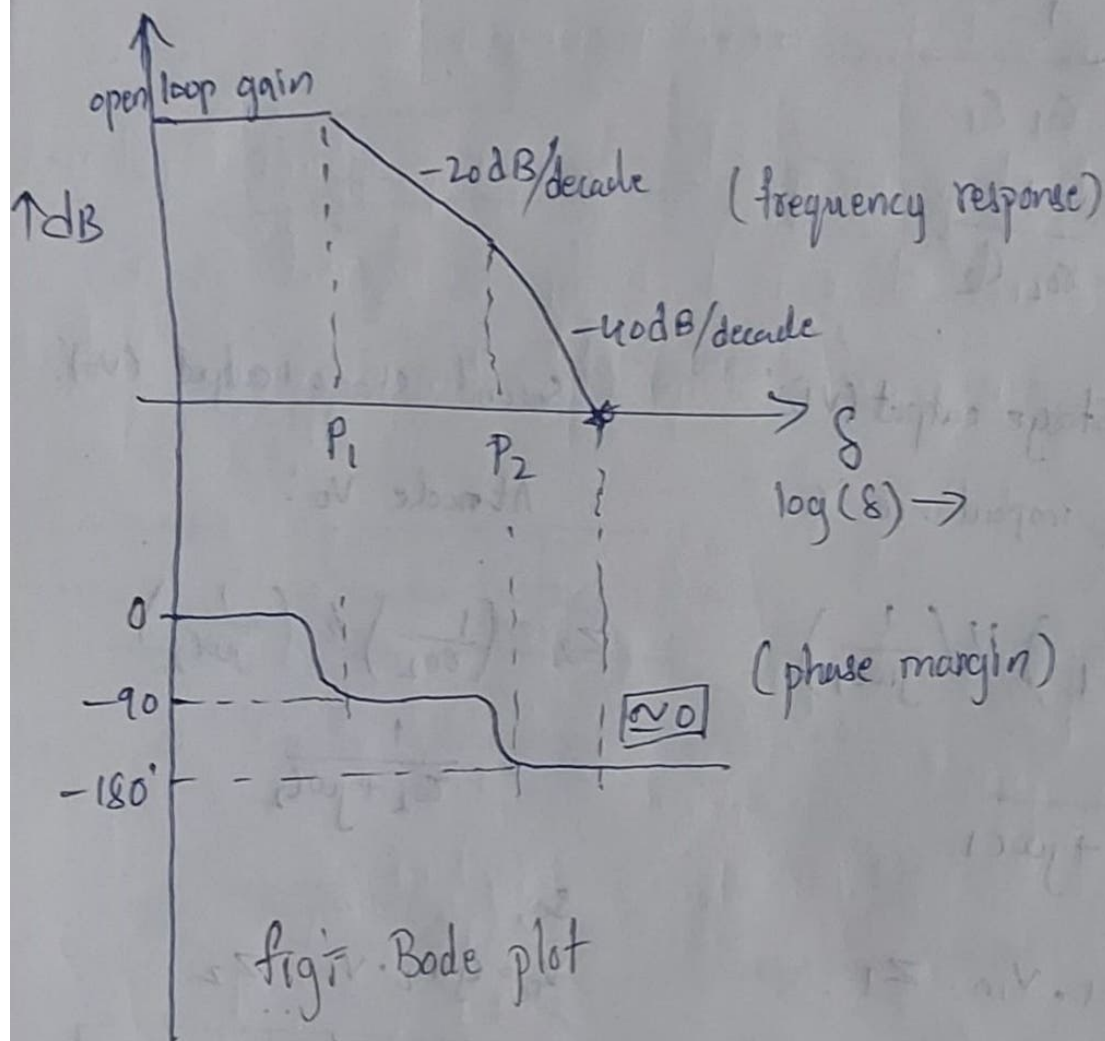 open loop gain
↑dB
-20dB/decade
(frequency response)
-40dB/decade
P1
P2
f
log(f) →
0
-90
-180°
≃0
(phase margin)
fig:- Bode plot